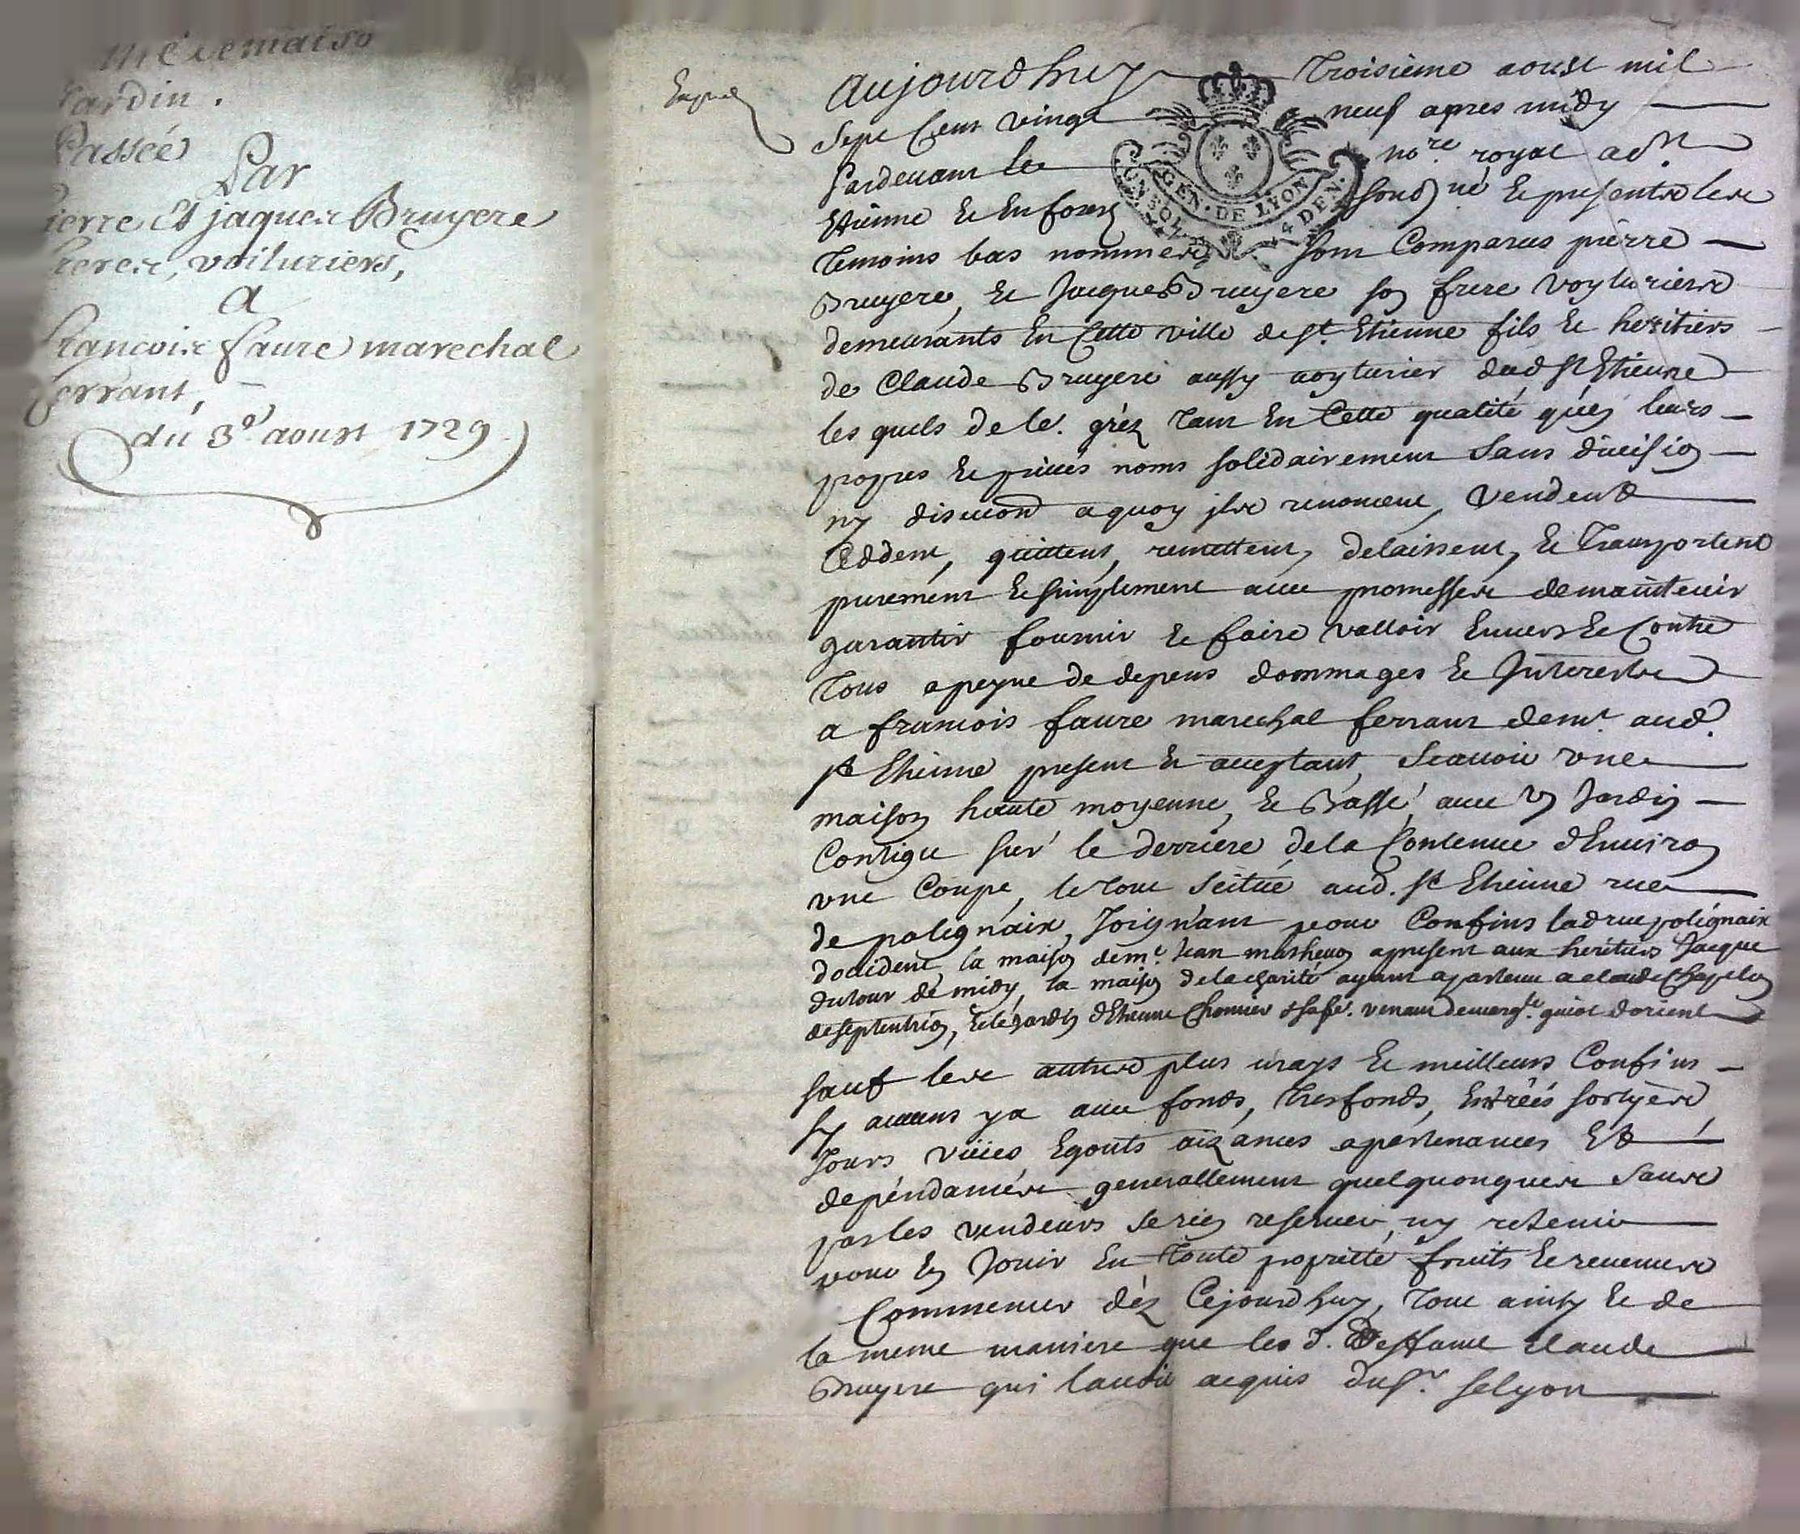 ardin.
Passée
Par
ierre Et jaques Bruyere
freres, voituriers,
A
françois faure marechal
ferrant,
du 3e aoust 1729
Aujourdhuy Troisieme aoust mil
Sept Cent vingt neuf apres midy
Pardevant le nore royal ad.
Etienne Et En forez sousné Et presents les
Temoins bas nommes sont Comparus pierre
Bruyere, Et Jacques Bruyere son frere voyturiers
demeurants En Cette ville de St. Etienne fils Et heritiers
de Claude Bruyere aussy voyturier dud St Etienne
les quels de le. gréz Tant En Cette qualité qu'en leurs
propres Et privés noms solidairement Sans division
ny discution a quoy ils renoncent, vendent
Ceddent, quittent, remettent, delaissent, Et Transportent
purement Et simplement avec promesses de maintenir
garantir fournir Et faire valloir Envers Et Contre
Tous a peyne de depens dommages Et Interests
a francois faure marechal ferrant demt. aud.
St Etienne present Et acceptant, Scavoir une
maison haute moyenne, Et Basse, avec un Jardin
Contigu sur le derriere de la Contenue d'Environ
une Coupe, le Tout Scitué aud. St Etienne rue
de polignaix, Joignant pour Confins lad rue polignaix
doccident, la maison de mr. Jean matheron apresent aux heritiers Jacque
dutour de midy, la maison de la charité ayant apartenu a claude Chapelon
de septentrion, Et le Jardin d'Etienne Chomier venant de guiot dorient
sauf les autres plus vrays Et meilleurs Confins
sy aucuns y a avec fonds, Thresfonds, Entrées sortyes,
Jours, viies Egouts aizances apartenances Et
dépendances generallement quelquonques Sans
par les vendeurs se rien reserver, ny retenir
pour En Jouir En Toute proprietté fruits Et revenus
Commencer déz Cejourdhuy, Tout ainsy Et de
la meme maniere que les d. Deffunt Claude
Bruyere qui lavoit acquis du Sr. selyon
GEN. DE LYON
UN SOL 4 DEN.